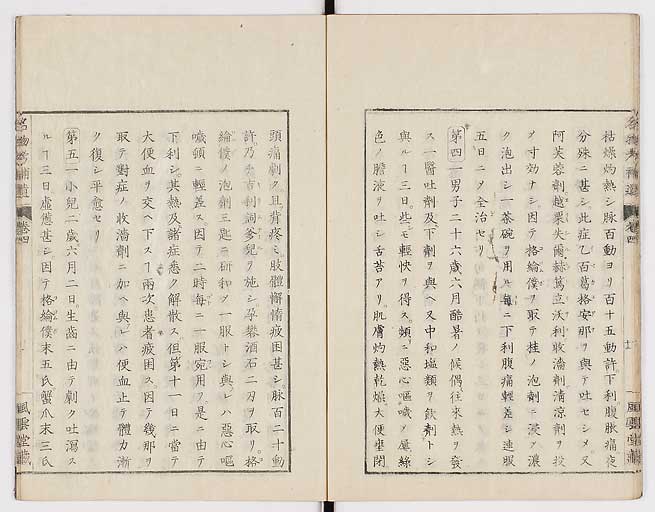 枯燥灼熱シ脉百動ヨリ百十五動許下利腹脹痛夜
分殊ニ甚シ此症乙百葛格安那ヲ與テ吐セシメ又
阿芙蓉劑越栗失爾赫篤立沃利收濇劑清凉劑ヲ投
メ寸効ナシ因テ格綸僕ヲ取テ桂ノ泡劑ニ浸メ濃
ク泡出シ一茶碗ヲ用ル毎ニ下利腹痛輕差シ連服
五日ニメ全治セリ
第四一男子二十六歳六月酷暑ノ候偶往來熱ヲ發
ス一醫吐劑及下劑ヲ與ヘ又中和塩類ヲ飲劑トシ
與ルヿ三日些モ輕快ヲ得ス頻ニ惡心嘔噦ノ屢綠
色ノ膽液ヲ吐シ舌苔アリ肌膚灼熱乾燥大便壅閉
頭痛劇ク且背疼ミ肢體懈惰疲困甚シ脉百二十動
許乃チ吉利詞爹兒ヲ施シ孕礬酒石二刃ヲ取リ格
綸僕ノ泡劑三匙ニ研和メ一服トシ與レハ惡心嘔
噦頓ニ輕差ス因テ二時毎ニ一服宛用ヲ是ニ由テ
下利シ其熱及諸症悉ク解散ス但第十一日ニ當テ
大便血ヲ交ヘ下スヿ兩次患者疲困ス因テ幾那ヲ
取テ對症ノ收濇劑ニ加ヘ與レハ便血止テ體力漸
ク復シ平愈セリ
第五一小兒二歳六月二日生齒ニ由テ劇ク吐瀉ス
ルヿ三日虚憊甚シ因テ格綸僕末五氏蟹爪末三氏
卷四
風雲堂藏